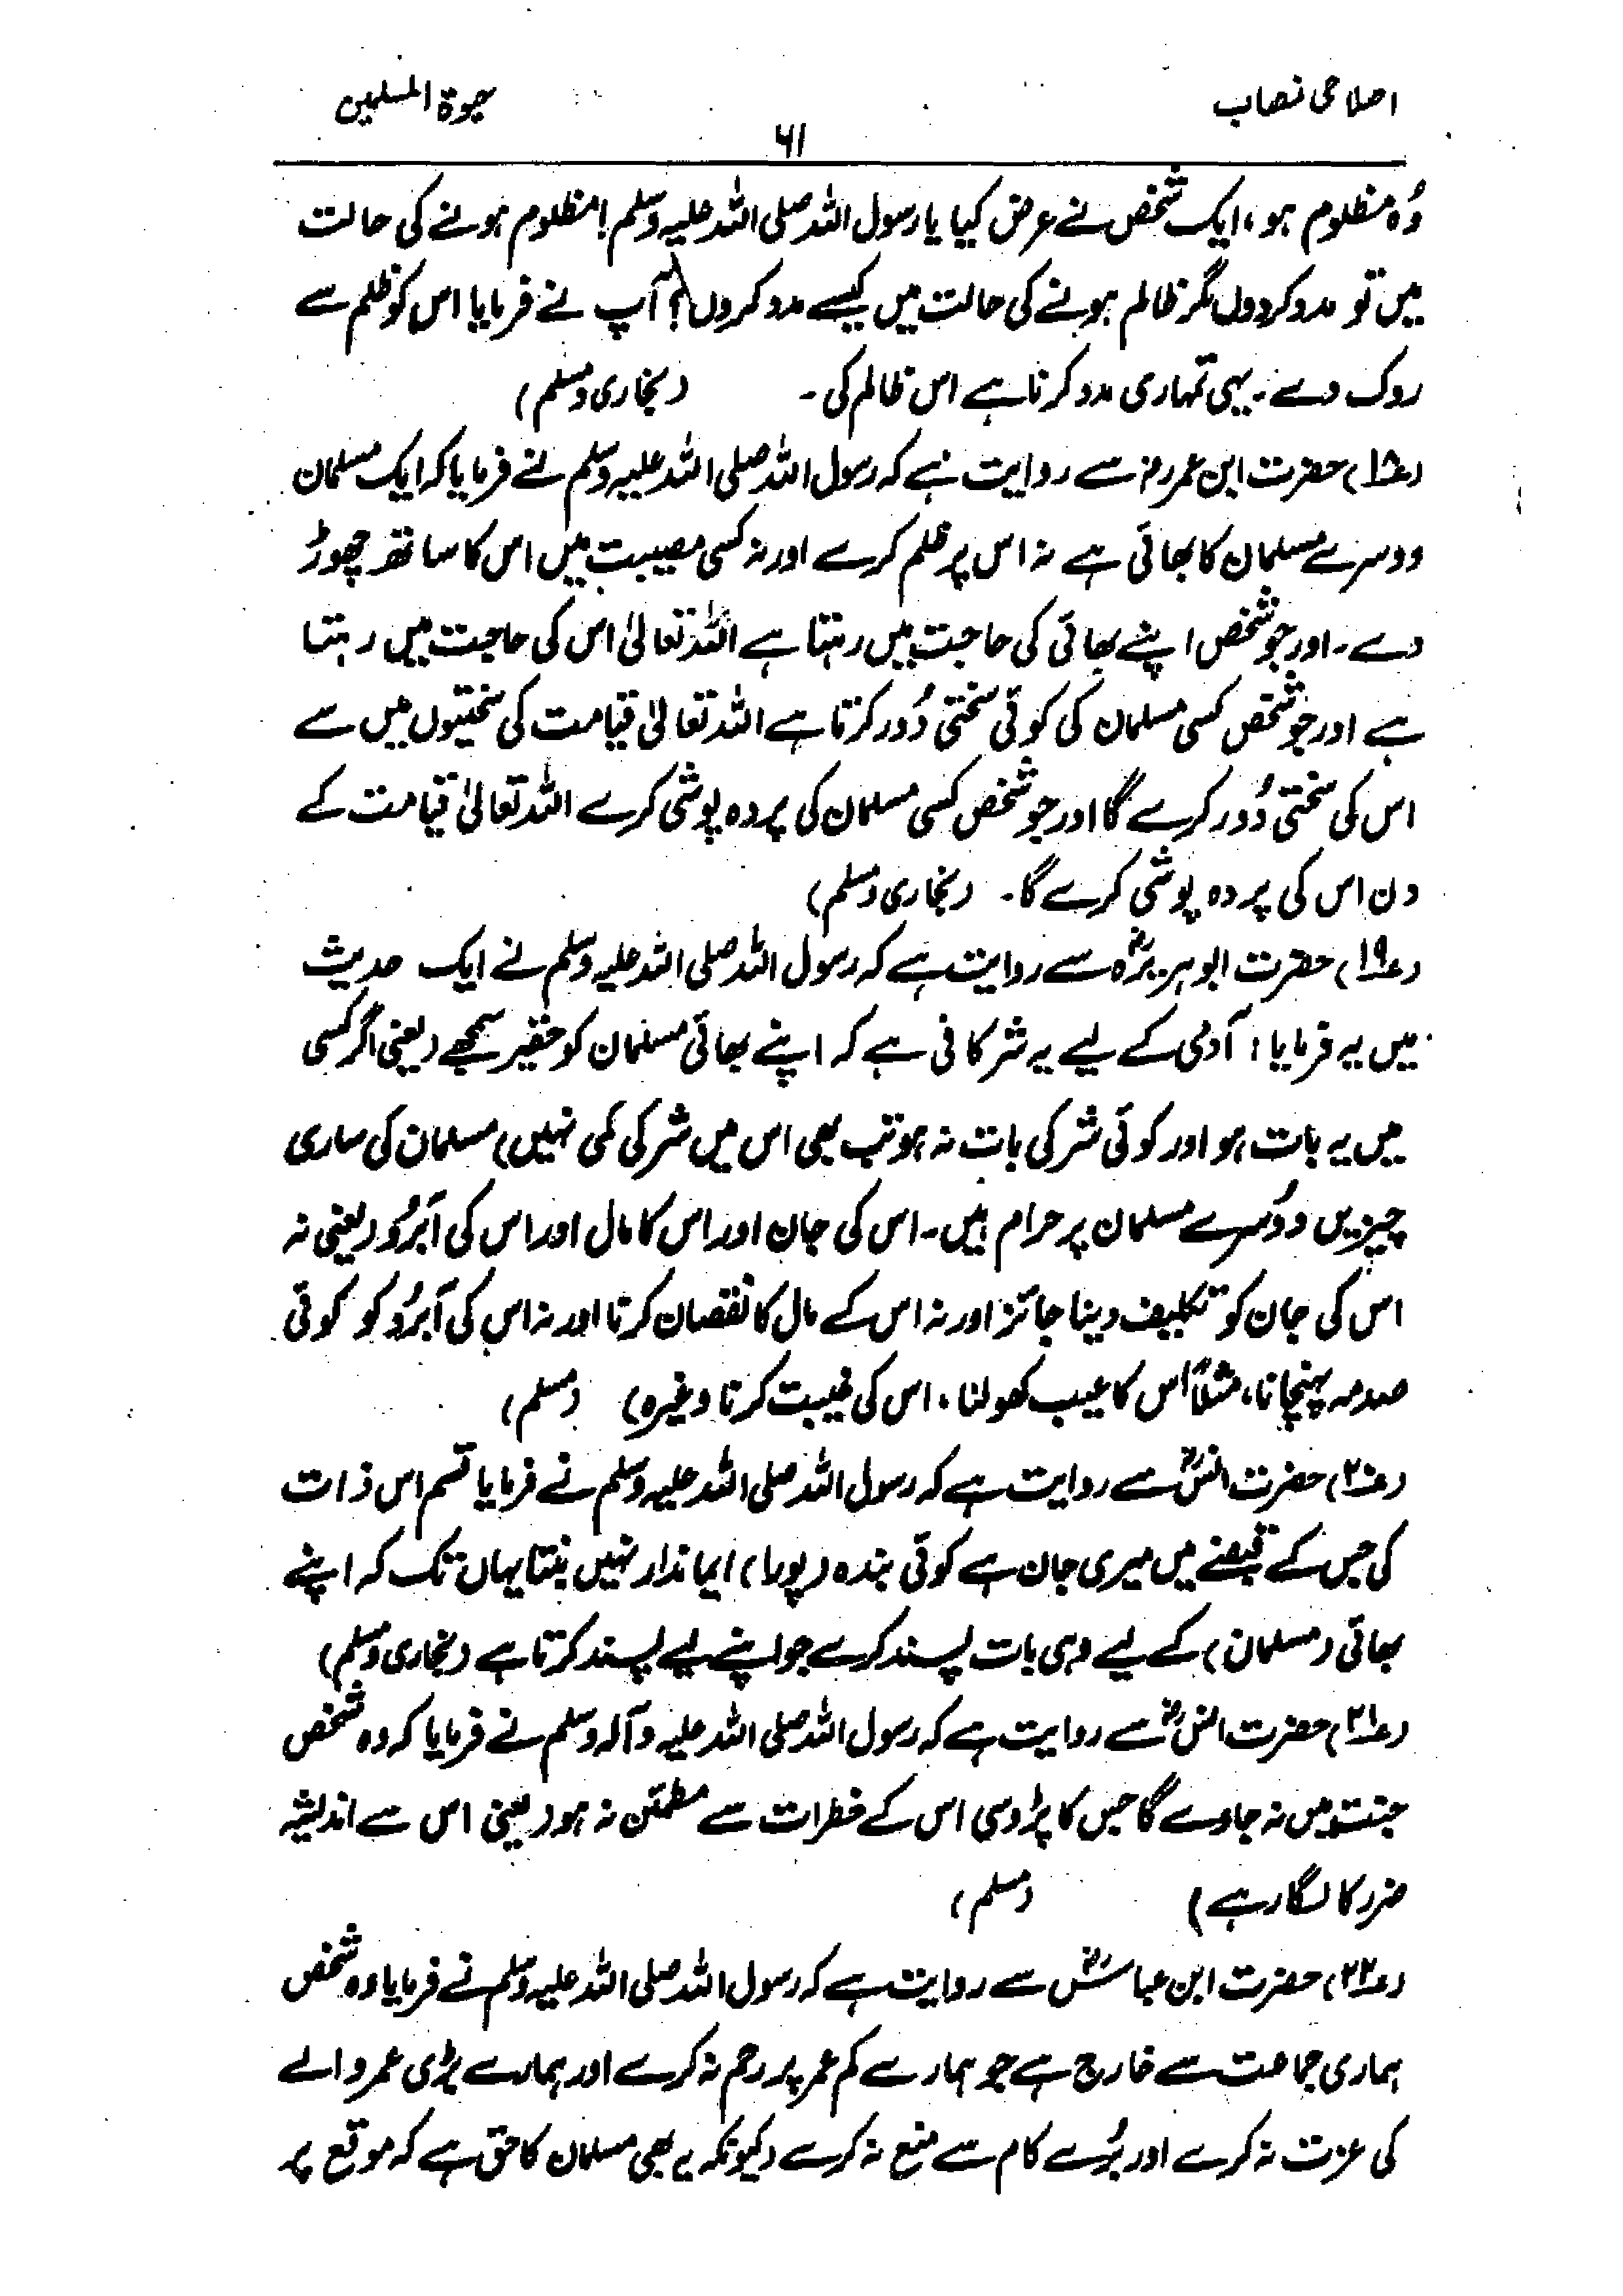 اصلاحی نصاب
حیوۃ المسلمین
۶۱
وُہ مظلوم ہو، ایک شخص نے عرض کیا یا رسول اللہ صلی اللہ علیہ وسلم! مظلوم ہونے کی حالت
میں تو مدد کر دوں مگر ظالم ہونے کی حالت میں کیسے مدد کروں؟ آپ نے فرمایا اس کو ظلم سے
روک دے۔ یہی تمہاری مدد کرنا ہے اس ظالم کی۔ (بخاری و مسلم)
(۱۸) حضرت ابن عمر رضہ سے روایت ہے کہ رسول اللہ صلی اللہ علیہ وسلم نے فرمایا کہ ایک مسلمان
دوسرے مسلمان کا بھائی ہے نہ اس پر ظلم کرے اور نہ کسی مصیبت میں اس کا ساتھ چھوڑ
دے۔ اور جو شخص اپنے بھائی کی حاجت میں رہتا ہے اللہ تعالیٰ اس کی حاجت میں رہتا
ہے اور جو شخص کسی مسلمان کی کوئی سختی دُور کرتا ہے اللہ تعالیٰ قیامت کی سختیوں میں سے
اس کی سختی دُور کرے گا اور جو شخص کسی مسلمان کی پردہ پوشی کرے اللہ تعالیٰ قیامت کے
دن اس کی پردہ پوشی کرے گا۔ (بخاری و مسلم)
(۱۹) حضرت ابوہریرہؓ سے روایت ہے کہ رسول اللہ صلی اللہ علیہ وسلم نے ایک حدیث
میں یہ فرمایا: آدمی کے لیے یہ شر کافی ہے کہ اپنے بھائی مسلمان کو حقیر سمجھے (یعنی اگر کسی
میں یہ بات ہو اور کوئی شر کی بات نہ ہو تب بھی اس میں شر کی کمی نہیں) مسلمان کی ساری
چیزیں دوُسرے مسلمان پر حرام ہیں۔ اس کی جان اور اس کا مال اور اس کی آبرُو (یعنی نہ
اس کی جان کو تکلیف دینا جائز اور نہ اس کے مال کا نقصان کرنا اور نہ اس کی آبرُو کو کوئی
صدمہ پہنچانا، مثلاً اس کا عیب کھولنا، اس کی غیبت کرنا وغیرہ) (مسلم)
(۲۰) حضرت انسؓ سے روایت ہے کہ رسول اللہ صلی اللہ علیہ وسلم نے فرمایا قسم اس ذات
کی جس کے قبضے میں میری جان ہے کوئی بندہ (پورا) ایماندار نہیں بنتا یہاں تک کہ اپنے
بھائی (مسلمان) کے لیے وہی بات پسند کرے جو اپنے لیے پسند کرتا ہے (بخاری و مسلم)
(۲۱) حضرت انسؓ سے روایت ہے کہ رسول اللہ صلی اللہ علیہ وآلہ وسلم نے فرمایا کہ وہ شخص
جنت میں نہ جاوے گا جس کا پڑوسی اس کے خطرات سے مطمئن نہ ہو (یعنی اس سے اندیشہ
ضرر کا لگا رہے) (مسلم)
(۲۲) حضرت ابن عباسؓ سے روایت ہے کہ رسول اللہ صلی اللہ علیہ وسلم نے فرمایا وہ شخص
ہماری جماعت سے خارج ہے جو ہمارے کم عمر پر رحم نہ کرے اور ہمارے بڑی عمر والے
کی عزت نہ کرے اور بُرے کام سے منع نہ کرے (کیونکہ یہ بھی مسلمان کا حق ہے کہ موقع پر